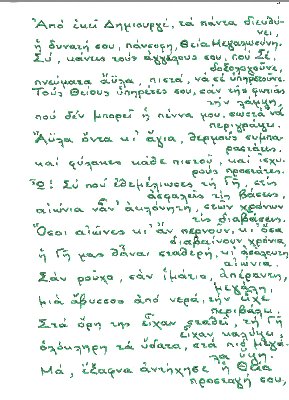 Ἀπό ἐκεῖ Δημιουργέ, τά πάντα διευθύ-
νει,
ἡ δυνατή σου, πάνσοφη, Θεία Μεγαλωσύνη.
Σύ, κάνεις τούς ἀγγέλους σου, πού Σέ
δοξολογοῦνε,
πνεύματα ἄϋλα, πιστά, νά σέ ὑπηρετοῦνε.
Τούς Θείους ὑπηρέτες σου, σάν τῆς φωτιᾶς
τήν λάμψη,
πού δέν μπορεῖ ἡ πέννα μου, σωστά νά
περιγράψη.
Ἄϋλα ὄντα κι' ἅγια, θερμούς συμπα-
ραστάτες,
καί φύλακες κάθε πιστοῦ, καί ἰσχυ-
ρούς προστάτες.
Ὤ! Σύ πού ἐθεμέλιωσες τή Γῆ, στίς
ἀσφαλεῖς της βάσεις,
αἰώνια νἆν' ἀκλόνητη, στῶν χρόνων
τίς διαβάσεις.
Ὅσοι αἰῶνες κι' ἄν περνοῦν, κι' ὅσα
διαβαίνουν χρόνια,
ἡ Γῆ μας θἆναι σταθερή, κι' ἀσάλευτη
αἰώνια.
Σάν ροῦχο, σάν ἱμάτιο, ἀπέραντη,
μεγάλη,
μιά ἄβυσσος ἀπό νερά, τήν εἶχε
περιβάλει.
Στά ὄρη της εἶχαν σταθεῖ, τή Γῆ
εἶχαν καλύψει,
ὁλόκληρη τά ὕδατα, στά πιό μεγά-
λα ὕψη.
Μά, ἔξαφνα ἀντήχησε ἡ Θεία
προσταγή σου,